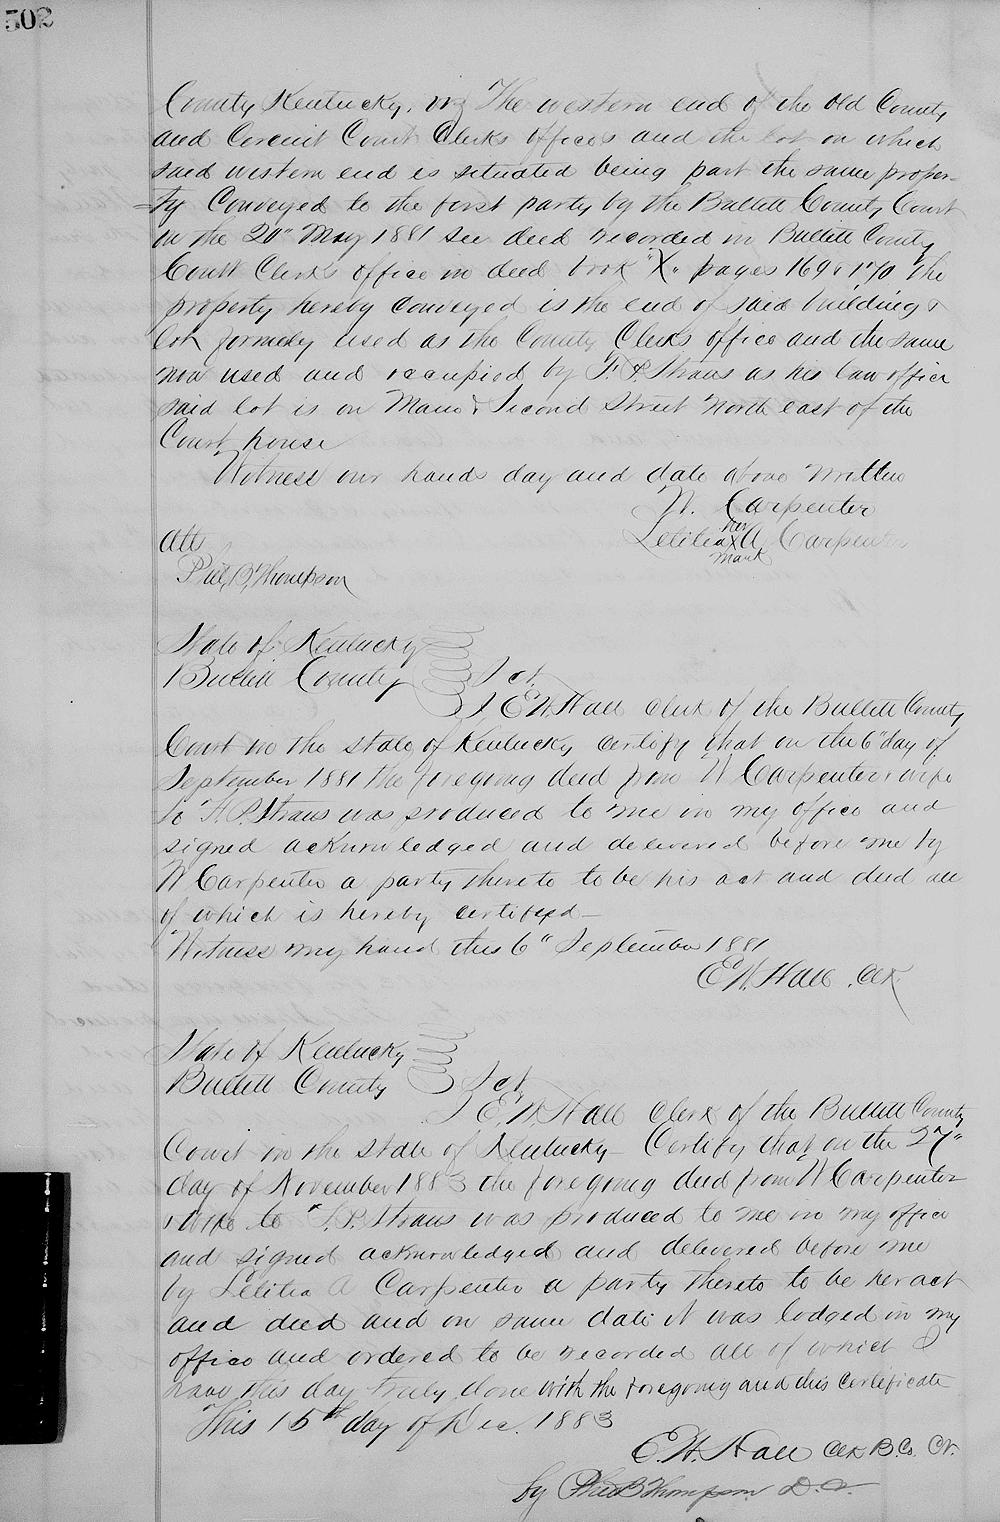 502
County Kentucky. viz The western end of the old County
and Circuit Court Clerks offices and the lot on which
said western end is situated being part the same proper-
ty Conveyed to the first party by the Bullitt County Court
on the 20" May 1881 see deed recorded in Bullitt County
Court Clerks office in deed book "X" pages 169 & 170 The
property hereby conveyed is the end of said building &
lot formerly used as the County Clerks office and the same
now used and occupied by F. P. Straus as his law office
said lot is on Main & Second Street North east of the
Court house
Witness our hands day and date above written
W. Carpenter
her
Letitia X A Carpenter
mark
Att
Phil. B. Thompson
State of Kentucky
Bullitt County } Sct.
I E. W. Hall clerk of the Bullitt County
Court in the state of Kentucky certify that on the 6" day of
September 1881 the foregoing deed from W Carpenter & wife
to F. P. Straus was produced to me in my office and
signed acknowledged and delivered before me by
W Carpenter a party thereto to be his act and deed all
of which is hereby certified—
Witness my hand this 6" September 1881
E. W. Hall . Clk
State of Kentucky
Bullitt County } Sct,
I E. W. Hall Clerk of the Bullitt County
Court in the state of Kentucky— Certify that on the 27"
day of November 1883 the foregoing deed from W Carpenter
& wife to F. P. Straus was produced to me in my office
and signed acknowledged and delivered before me
by Letitia A Carpenter a party thereto to be her act
and deed and on same date it was lodged in my
office and ordered to be recorded all of which I
have this day truly done with the foregoing and this certificate
This 15th day of Dec. 1883
E. W. Hall Clk B. Co. Ct.
by Phil B Thompson D. C.